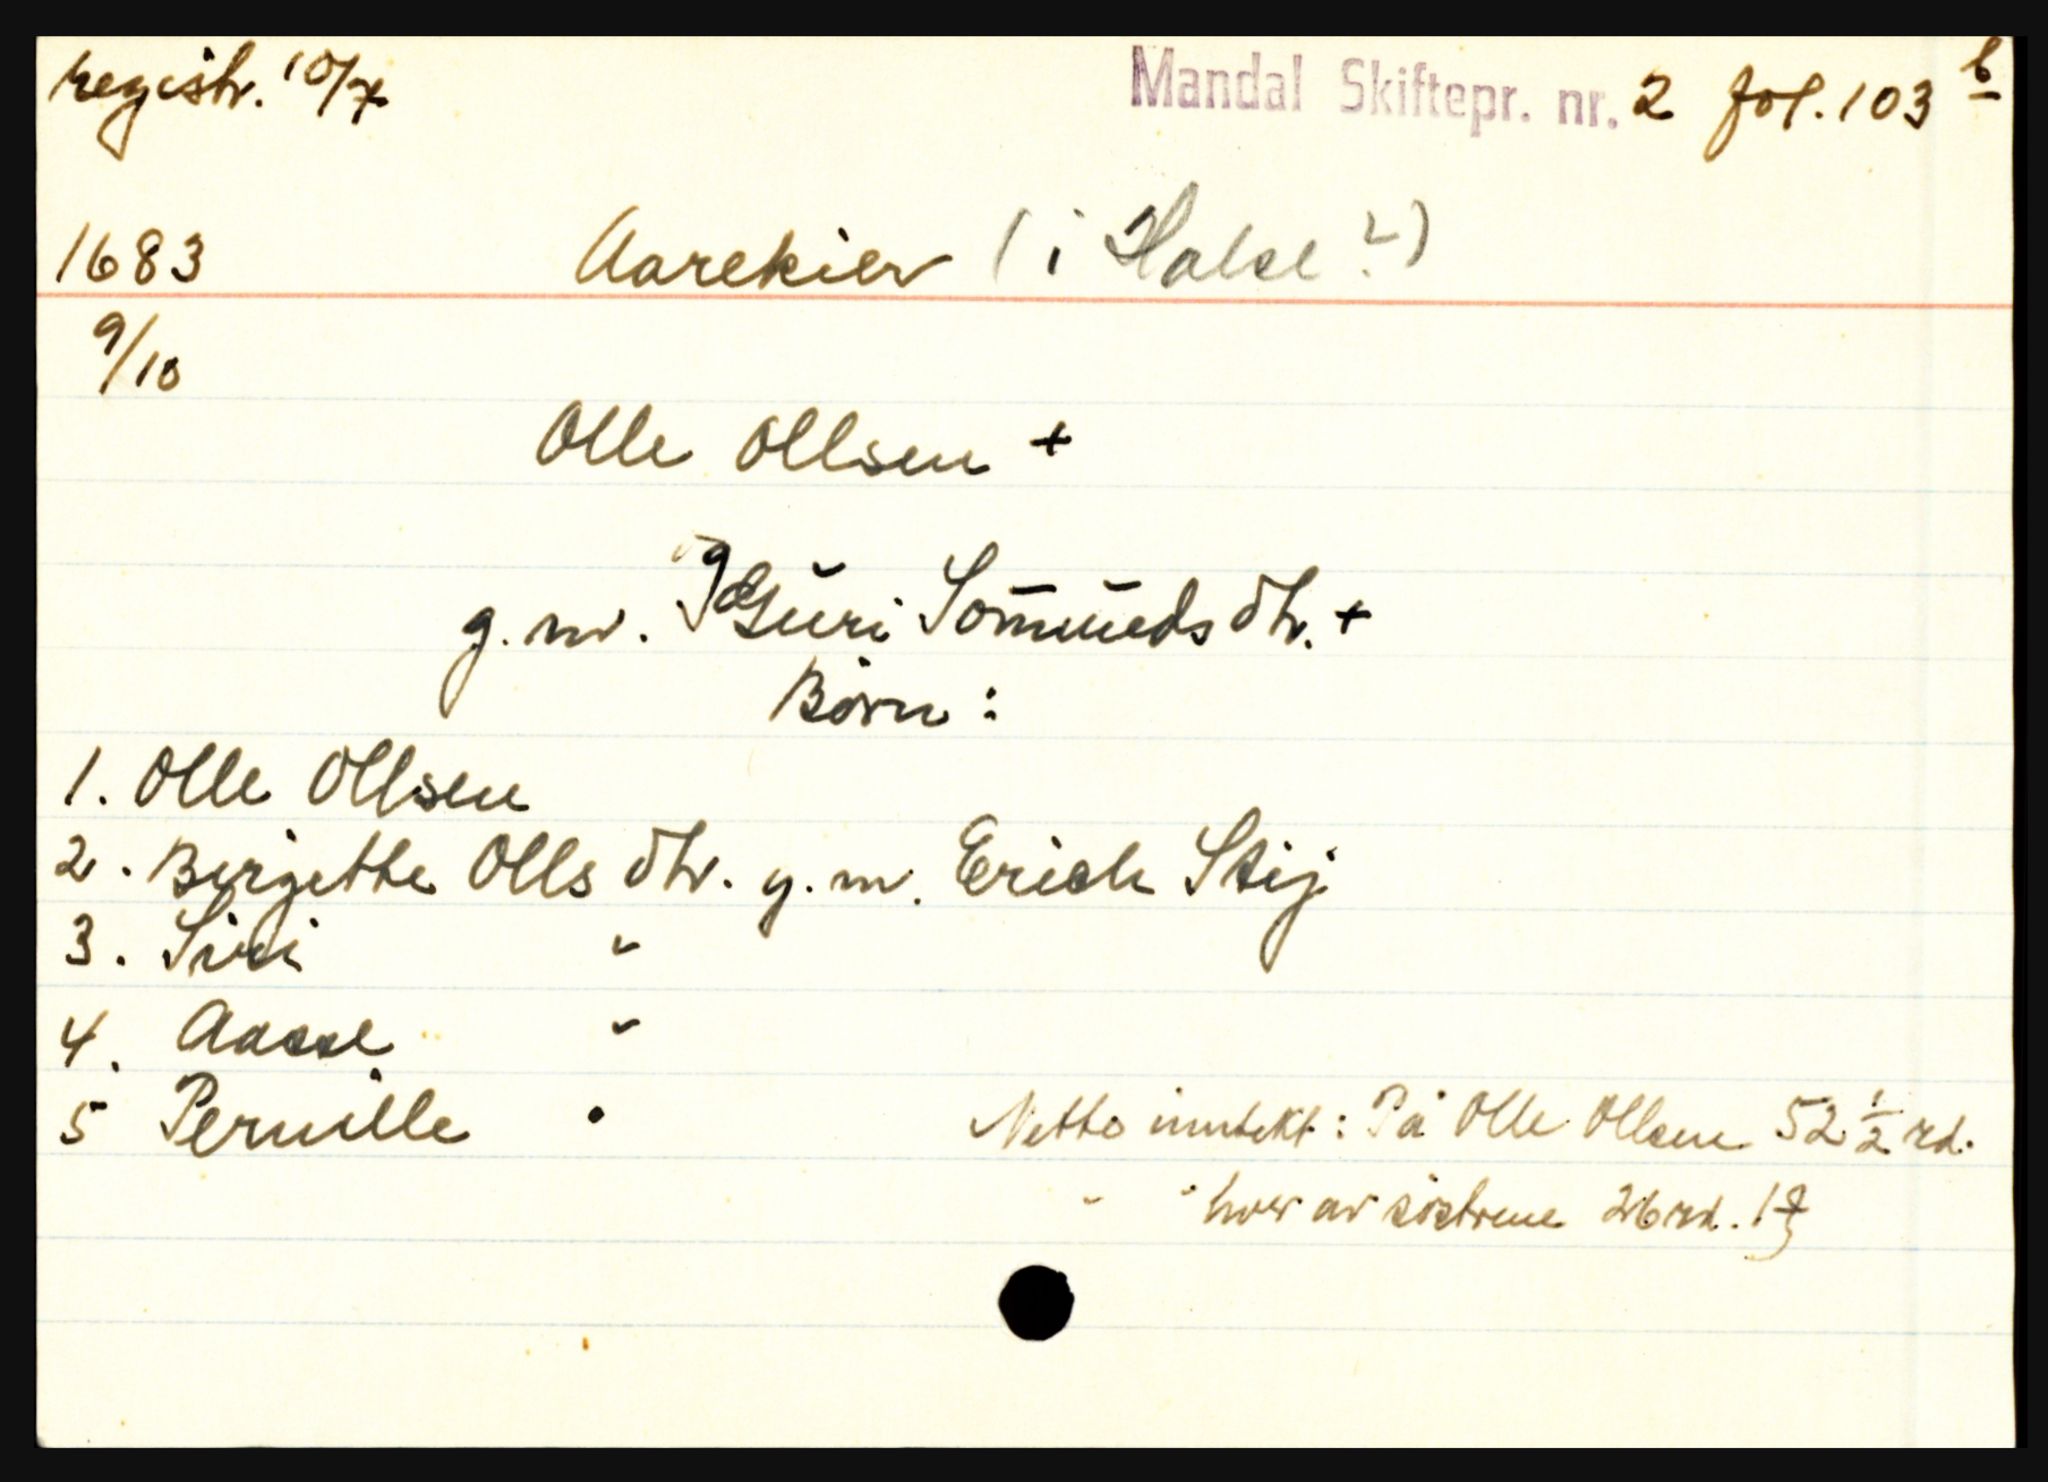 registr. 10/7. Mandal Skiftepr. nr. 2 fol. 103 b
1683 Aarekier (i Halse?)
9/10
Olle Ollsen +
g. m. Guri Som̄ūeds dtr. +
Børn :
1. Olle Ollsen
2. Birgette Olls dtr. g. m. Erich Stij
3. Siri "
4. Aasse "
5 Pernille "
Netto inntekt: På Olle Ollsen 52 1/2 rd.
" " hver av søstrene 26 rd. 1